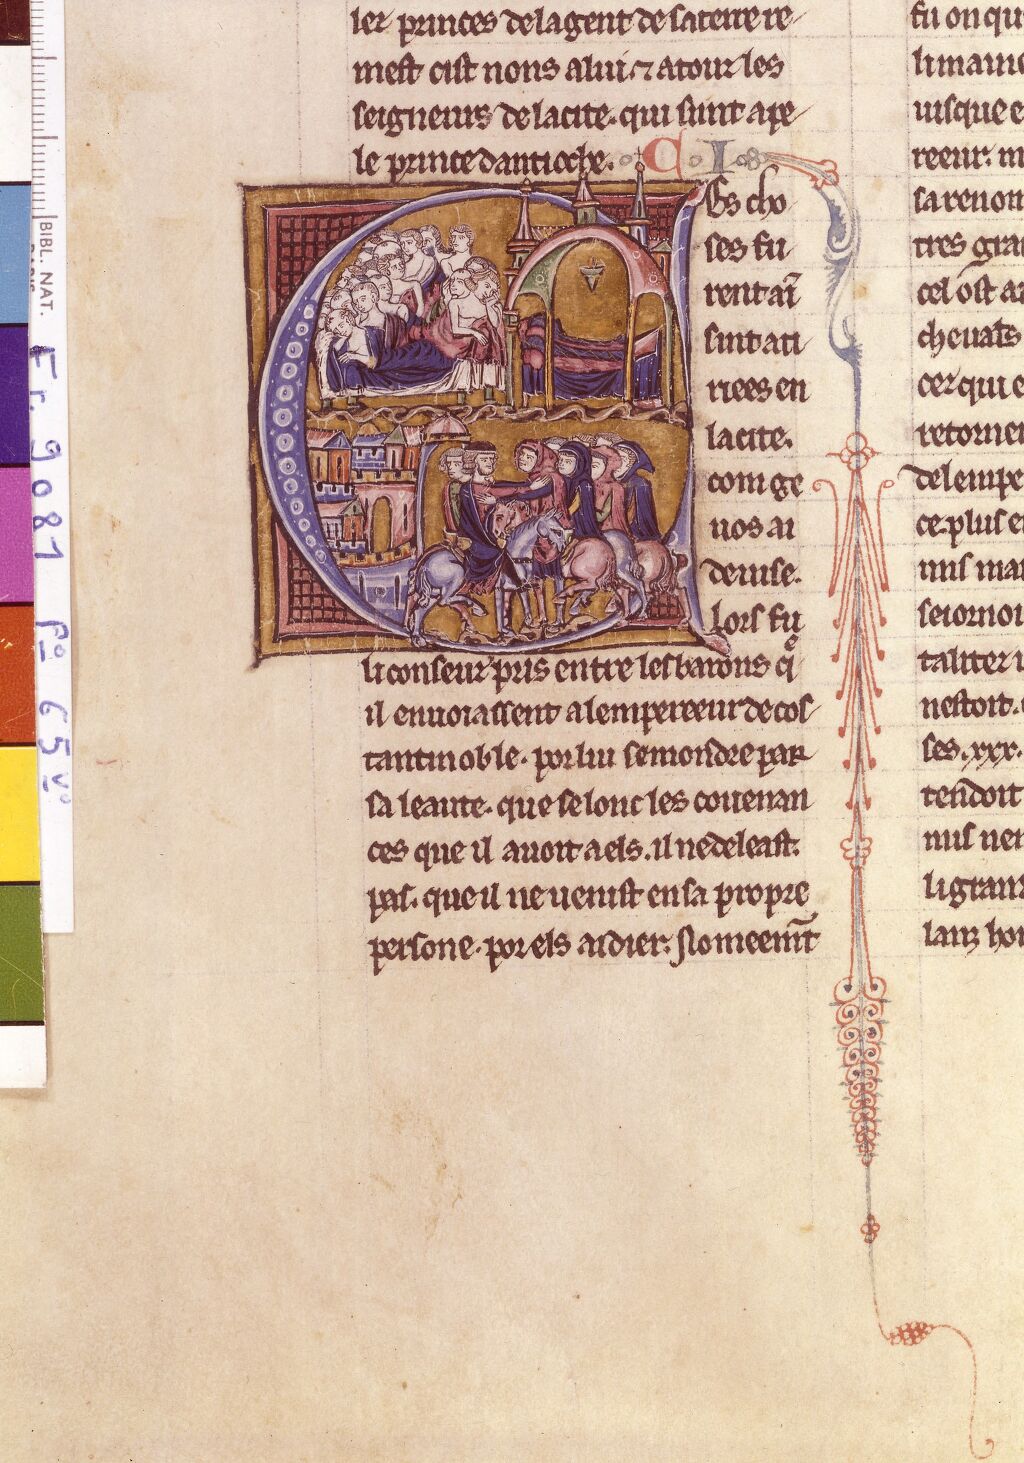 ler princes de la gent de sa terre re
mest cist nons a lui ⁊ a touz les
seigneurs de la cite. qui sunt ape
le prince dantioche.
.C.I.
Es cho
ses fu
rent aī
sint ati
riees en
la cite.
com ge
uos ai
deuise.
Lors fu
li conseuz pris entre les barons q̇
il enuoiassent a lempereeur de cos
tantinoble. por lui semondre par
sa leaute. que selonc les couenan
ces que il auoit a els. il ne deleast.
pas. que il ne uenist en sa propre
persone. por els aidier. si omeem̄t
fu on qu
li maint
uisque e
reeur. m
sa renon
tres gra
cel ost a
cheuals
cer qui e
retorner
de lempe
ce. plus e
mis mai
seiornoi
taliter u
nestoit.
ses .xxx.
tendoit
nus nen
li grant
lanz hon
BIBL. NAT.
PARIS
Fr. 9081 fo 65 vo